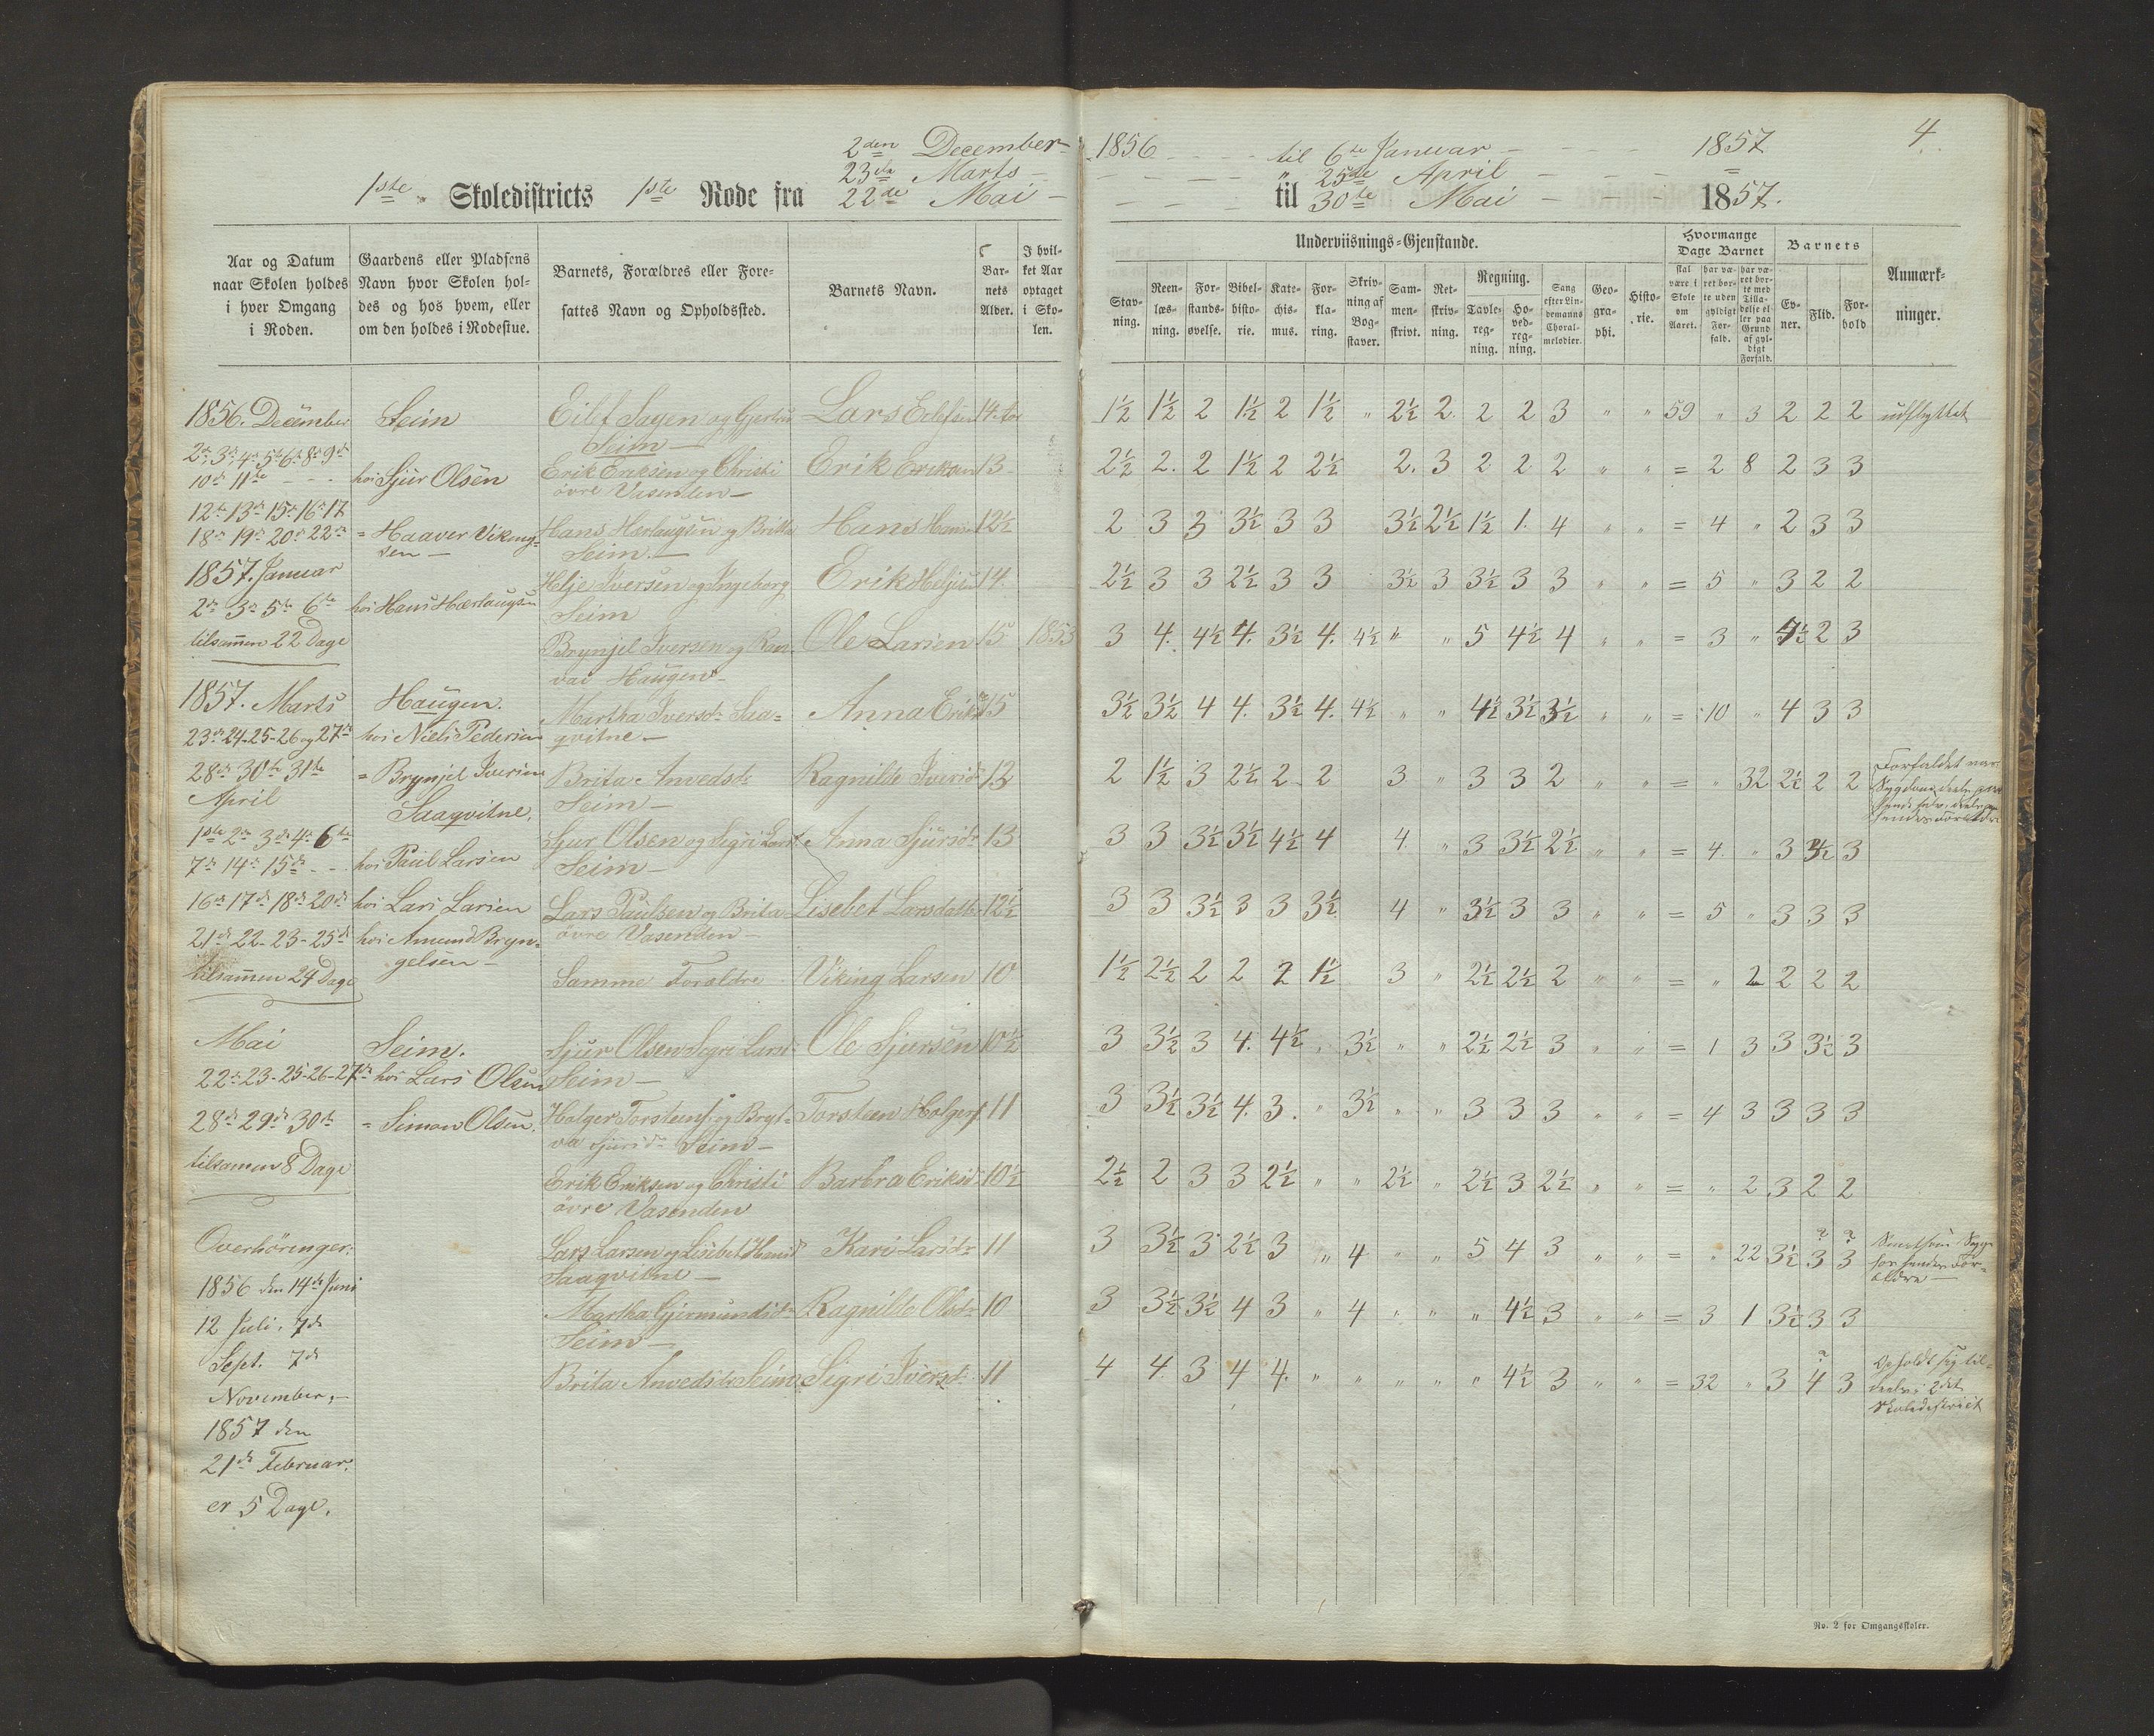 2den December 1856 til 6te Januar 1857 4.
23de Marts " 25de April "
1ste Skoledistricts 1ste Rode fra 22de Mai til 30te Mai 1857.
Aar og Datum naar Skolen holdes i hver Omgang i Roden.
Gaardens eller Pladsens Navn hvor Skolen holdes og hos hvem, eller om den holdes i Rodestue.
Barnets, Forældres eller Foresattes Navn og Opholdssted.
Barnets Navn.
Barnets Alder.
I hvilket Aar optaget i Skolen.
Underviisnings-Gjenstande.
Stavning.
Reenlæsning.
Forstandsøvelse.
Bibelhistorie.
Katechismus.
Forklaring.
Skrivning af Bogstaver.
Sammenskrivt.
Retskrivning.
Regning.
Tavleregning.
Hovedregning.
Sang efter Lindemanns Choralmelodier.
Geographi.
Historie.
Hvormange Dage Barnet
skal være i Skole om Aaret.
har været borte uden gyldigt Forfald.
har været borte med Tilladelse eller paa Grund af gyldigt Forfald.
Barnets
Evner.
Flid.
Forhold
Anmærkninger.
1856. December
2de 3de 4de 5te 6te 8de 9de
10de 11te
12te 13de 15de 16de 17
18de 19de 20de 22de
1857. Januar
2de 3de 5te 6te
tilsammen 22 Dage
1857. Marts
23de 24-25-26 og 27de
28de 30te 31te
April
1ste 2den 3de 4de 6te
7de 14de 15de
16de 17de 18de 20de
21de 22-23-25de
tilsammen 24 Dage
Mai
22de 23-25-26-27de
28de 29de 30te
tilsamen 8 Dage
Overhöringer.
1856 den 14de Juni
12 Juli. 7de
Sept. 7de
November,
1857 den
21de Februar.
er 5 Dage.
Seim
hos Sjur Olsen
= Haaver Vikingsen
hos Hans Hærlaugsen
Haugen.
hos Niels Pedersen
= Brynjel Iversen
Saaqvitne.
hos Paul Larsen
hos Lars Larsen
hos Amund Bryngelsen
Seim.
hos Lars Olsen
= Simon Olsen.
Eilef Sayen og Gjertru Seim Lars Eilefsen 14 Aar 1½ 1½ 2 1½ 2 1½ " 2½ 2. 2 2 3 " " 59 " 3 2 2 2 udflyttet
Erik Eriksen og Christi övre Vasenden Erik Eriksen 13 2½ 2. 2 1½ 2 2½ 2. 3 2 2 2 " " = 2 8 2 3 3
Hans Herlaugsen og Britha Seim. Hans Hansen 12½ 2 3 3 3½ 3 3 3½ 2½ 1½ 1. 4 " " = 4 " 2 3 3
Helje Iversen og Ingeborg Seim Erik Heljesen 14. 2½ 3 3 2½ 3 3 3½ 3 3½ 3 3 " " = 5 " 3 2 2
Brynjel Iversen og Ranvei Haugen Ole Larsen 15 1853 3 4. 4½ 4. 3½ 4. 4½ " " 5 4½ 4 " " = 3 " 2 3
Martha Iversdr Saaqvitne Anna Eriksdr 15 3½ 3½ 4 4. 3½ 4. 4½ " " 4½ 3½ 3½ " " = 10 " 4 3 3
Brita Anvedsdr Seim Ragnilde Iversdr 12 2 1½ 3 2½ 2 2 3 " 3 3 2 " " = " 32 2½ 2 2 Forfaldet var Sygdom
Sjur Olsen og Sigri Larsd Seim Anna Sjursdr 13 3 3 3½ 3½ 4½ 4 4. " 3 3½ 2½ " " = 4. " 3 3½ 3
Lars Paulsen og Brita övre Vasenden Lisebet Larsdatter 12½ 3 3 3½ 3 3 3½ 4 " 3½ 3 3 " " = 5 " 3 3 3
Samme Foraldre Viking Larsen 10 1½ 2½ 2 2 2 1½ 3 " 2½ 2½ 2 " " = " 2 2 2 2
Sjur Olsen Segri Larsd. Seim Ole Sjursen 10½ 3 3½ 3 4. 4½ " 3½ " " 2½ 2½ 3 " " = 1 3 3 3½ 3
Holger Torsteins. og Brytva Sjursdr Seim Torsteen Holgers. 11 3 3½ 3½ 4. 3. " 3½ " " 3 3 3 " " = 4 3 3 3 3
Erik Eriksen og Christi övre Vasenden Barbra Eriksd. 10½ 2½ 2 3 3 2½ " " 2½ " 2½ 3 2½ " " = " 2 3 2 2
Lars Larsen og Lisebet Hansd Saaqvitne Kari Larsdr 11 3 3½ 3 2½ 3 " 4 " " 5 4 3 " " = " 22 3½ 3 3
Martha Gjermundsdr Seim Ragnilde Olsdr 10 3 3½ 3½ 4 3 " 4 " " " 4½ 3 " " = 3 1 3½ 3 3
Brita Anvedsdr Seim Sigri Iversdr 11 4 4. 3 4 4. " " " " " 4½ 3 " " = 32 " 3 4 3 Opholdt sig tildeels i 2det Skoledistrict
No. 2 for Omgangsskoler.